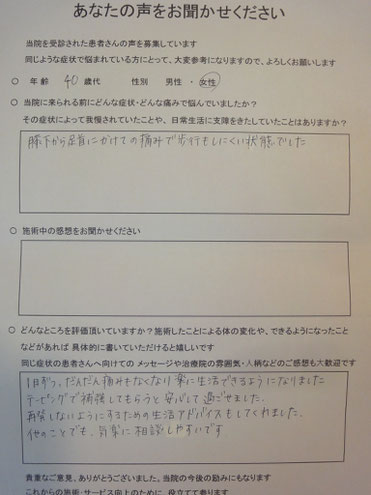 あなたの声をお聞かせください
当院を受診された患者さんの声を募集しています
同じような症状で悩まれている方にとって、大変参考になりますので、よろしくお願いします
○ 年齢 40 歳代 性別 男性 ・ 女性
○ 当院に来られる前にどんな症状・どんな痛みで悩んでいましたか？
その症状によって我慢されていたことや、日常生活に支障をきたしていたことはありますか？
膝下から足首にかけての痛みで歩行もしにくい状態でした
○ 施術中の感想をお聞かせください
○ どんなところを評価頂いていますか？施術したことによる体の変化や、できるようになったこと
などがあれば 具体的に書いていただけると嬉しいです
同じ症状の患者さんへ向けての メッセージや治療院の雰囲気・人柄などのご感想も大歓迎です
1日ずつ、だんだん痛みもなくなり楽に生活できるようになりました
テーピングで補強してもらうと安心して過ごせました。
再発しないようにするための生活アドバイスもしてくれました。
他のことでも、気楽に相談しやすいです
貴重なご意見、ありがとうございました。当院の今後の励みにもなります
これからの施術・サービス向上のために、役立てて参ります